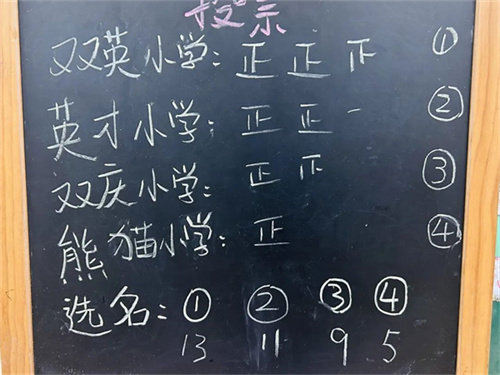 投票
双英小学：正 正 下 ①
英才小学：正 正 一 ②
双庆小学：正 下 ③
熊猫小学：正 ④
选名：① ② ③ ④
13 11 9 5